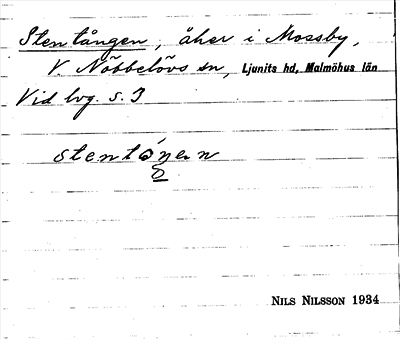 Stentången, åker i Mossby,
V. Nöbbelövs sn, Ljunits hd, Malmöhus län
Vid lvg. s. 3
NILS NILSSON 1934